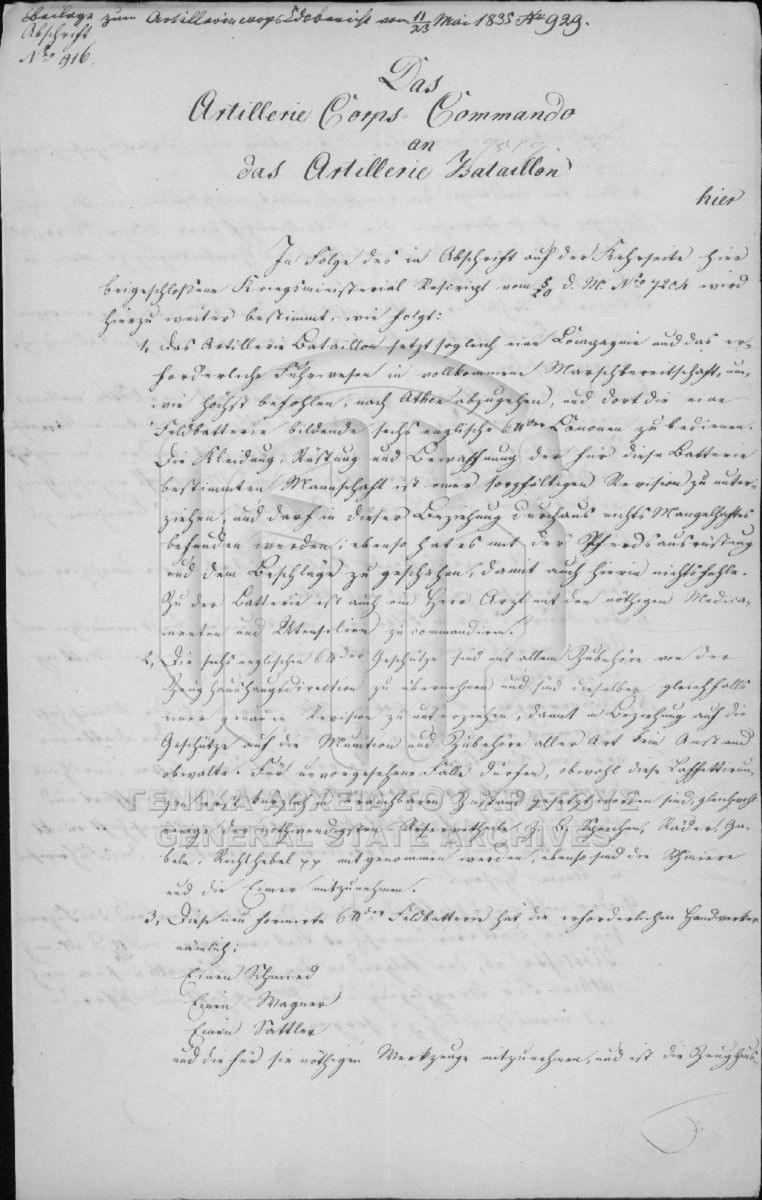 Beilage zum Artilleriecorps Cdobericht vom 11/23 Mai 1835 No 929.
Abschrift
No 916.
Das
Artillerie Corps-Commando
an
das Artillerie Bataillon
hier
In Folge des in Abschrift auf der Kehrseite hier
beigeschloßene Kriegsministerial Rescript vom 8/20 d. M. No 7204 wird
hierzu weiter bestimmt, wie folgt:
1, das Artillerie Bataillon setzt sogleich eine Compagnie und das er-
forderliche Fuhrwesen in vollkommene Marschbereitschaft, um,
wie höchst befohlen, nach Athen abzugehen, und dort die eine
Feldbatterie bildende sechs englische 6 der Canonen zu bedienen.
Die Kleidung, Rüstung und Bewaffnung der für diese Batterie
bestimmten Mannschaft ist einer sorgfältigen Revision zu unter-
ziehen, und darf in dieser Beziehung durchaus nichts Mangelhaftes
befunden werden; ebenso hat es mit der Pferdsausrüstung
und dem Beschläge zu geschehen, damit auch hierin nichts fehle.
Zu der Batterie ist auch ein Herr Arzt mit den nöthigen Medica-
menten und Utensilien zu commandiren.
2, Die sechs englischen 6 der Geschütze sind mit allem Zubehöre von der
Zeughaushauptdirektion zu übernehmen und sind dieselben gleichfalls
einer genauen Revision zu unterziehen, damit in Beziehung auf die
Geschütze auf die Munition und Zubehöre aller Art kein Anstand
obwalte. Für unvorgesehene Fälle dürfen, obwohl diese Laffettirun-
gen erst kürzlich in brauchbaren Zustand gesetzt worden sind, gleichwohl
einige der nothwendigsten Reservetheile z. B. Speichen, Räder, Ga-
beln, Richthebel pp mitgenommen werden, ebenso sind die Schmiere
und die Eimer mitzunehmen.
3, Diese neu formirte 6 der Feldbatterie hat die erforderlichen Handwerker
nämlich:
Einen Schmied
Einen Wagner
Einen Sattler
und die für sie nöthigen Werkzeuge mitzunehmen, und ist die Zeughaus-
ΓΕΝΙΚΑ ΑΡΧΕΙΑ ΤΟΥ ΚΡΑΤΟΥΣ
GENERAL STATE ARCHIVES